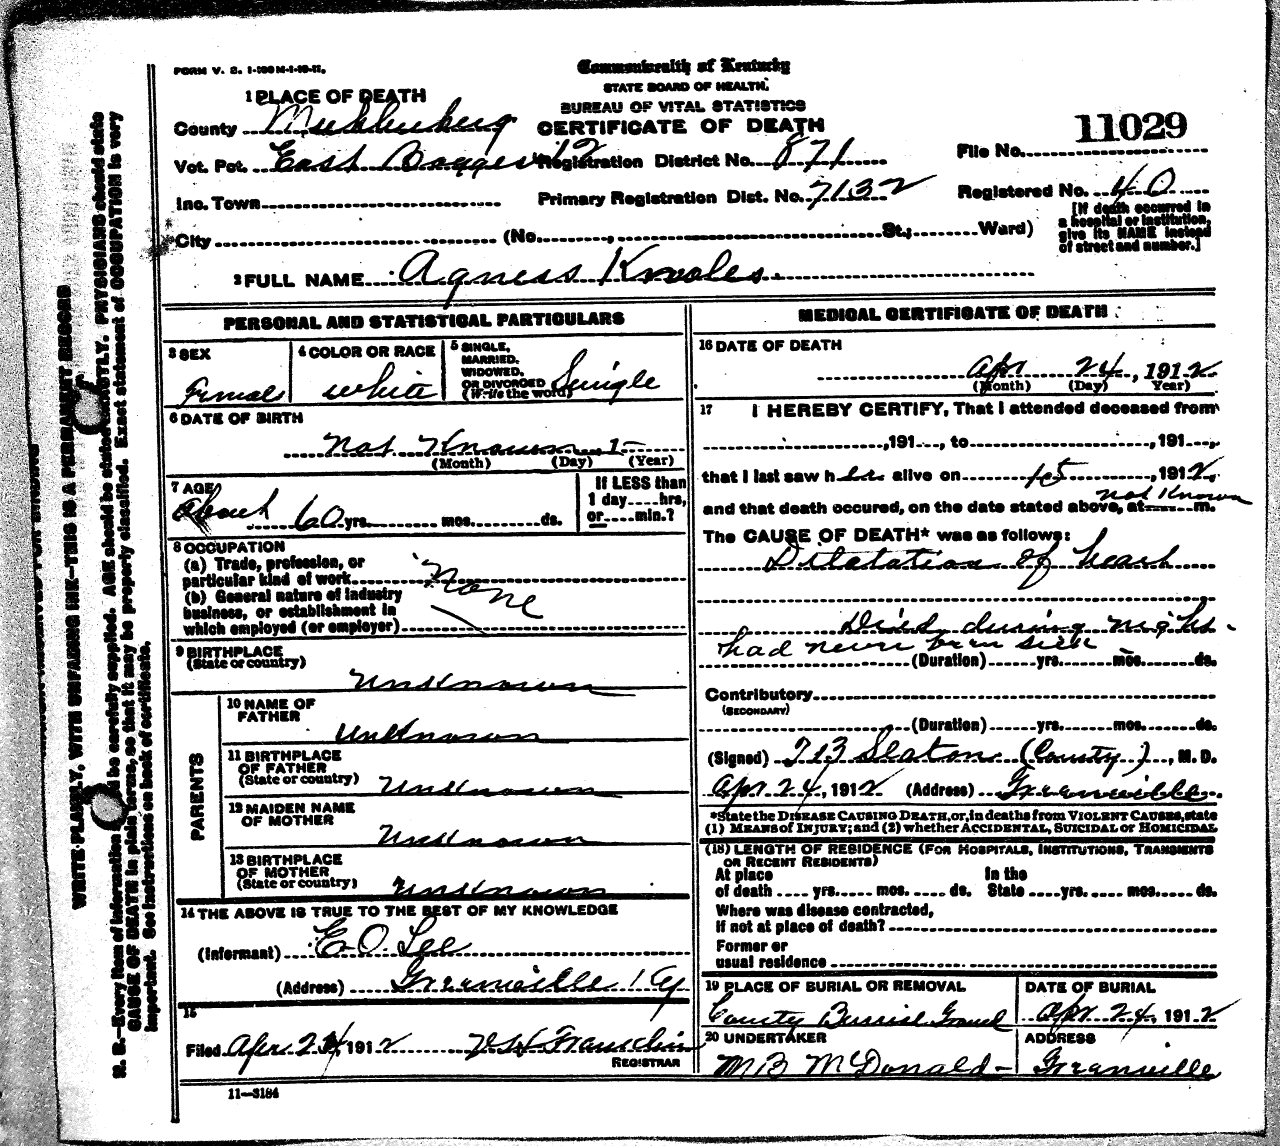 FORM V. S. 1-100M-1-10-11.
Commonwealth of Kentucky
STATE BOARD OF HEALTH.
BUREAU OF VITAL STATISTICS
CERTIFICATE OF DEATH
1 PLACE OF DEATH
County Muhlenberg
Vot. Pct. East Boggess 12 Registration District No. 871
File No. 11029
Inc. Town Primary Registration Dist. No. 7132
Registered No. 40
City (No. , St.; Ward)
[If death occurred in a hospital or institution, give its NAME instead of street and number.]
2 FULL NAME Agness Knoles
PERSONAL AND STATISTICAL PARTICULARS
3 SEX Female
4 COLOR OR RACE white
5 SINGLE, MARRIED, WIDOWED, OR DIVORCED (Write the word) Single
6 DATE OF BIRTH
Not Known, 1
(Month) (Day) (Year)
7 AGE
About 60 yrs. mos. ds.
If LESS than 1 day hrs, or min.?
8 OCCUPATION
(a) Trade, profession, or
particular kind of work None
(b) General nature of industry
business, or establishment in
which employed (or employer)
9 BIRTHPLACE
(State or country)
Unknown
PARENTS
10 NAME OF
FATHER
Unknown
11 BIRTHPLACE
OF FATHER
(State or country) Unknown
12 MAIDEN NAME
OF MOTHER
Unknown
13 BIRTHPLACE
OF MOTHER
(State or country) Unknown
14 THE ABOVE IS TRUE TO THE BEST OF MY KNOWLEDGE
(Informant) E. O. Lee
(Address) Greenville Ky
15
Filed Apr 24, 1912
REGISTRAR
11—3184
MEDICAL CERTIFICATE OF DEATH
16 DATE OF DEATH
Apr 24, 1912
(Month) (Day) Year)
17 I HEREBY CERTIFY, That I attended deceased from
, 191 , to , 191 ,
that I last saw h alive on , 1912,
not Known
and that death occured, on the date stated above, at m.
The CAUSE OF DEATH* was as follows:
Dilatation of heart
Died during night
had never been sick
(Duration) yrs. mos. ds.
Contributory
(SECONDARY)
(Duration) yrs. mos. ds.
(Signed) Slaton (County), M. D.
Apr 24, 1912 (Address) Greenville.
*State the DISEASE CAUSING DEATH, or, in deaths from VIOLENT CAUSES, state
(1) MEANS of INJURY; and (2) whether ACCIDENTAL, SUICIDAL or HOMICIDAL
(18) LENGTH OF RESIDENCE (FOR HOSPITALS, INSTITUTIONS, TRANSIENTS
OR RECENT RESIDENTS)
At place In the
of death yrs. mos. ds. State yrs. mos. ds.
Where was disease contracted,
if not at place of death?
Former or
usual residence
19 PLACE OF BURIAL OR REMOVAL DATE OF BURIAL
County Burial Ground Apr 24, 1912
20 UNDERTAKER ADDRESS
M B McDonald- Greenville
WRITE PLAINLY, WITH UNFADING INK—THIS IS A PERMANENT RECORD
N. B.—Every item of information should be carefully supplied. AGE should be stated EXACTLY. PHYSICIANS should state
CAUSE OF DEATH in plain terms, so that it may be properly classified. Exact statement of OCCUPATION is very
important. See instructions on back of certificate.